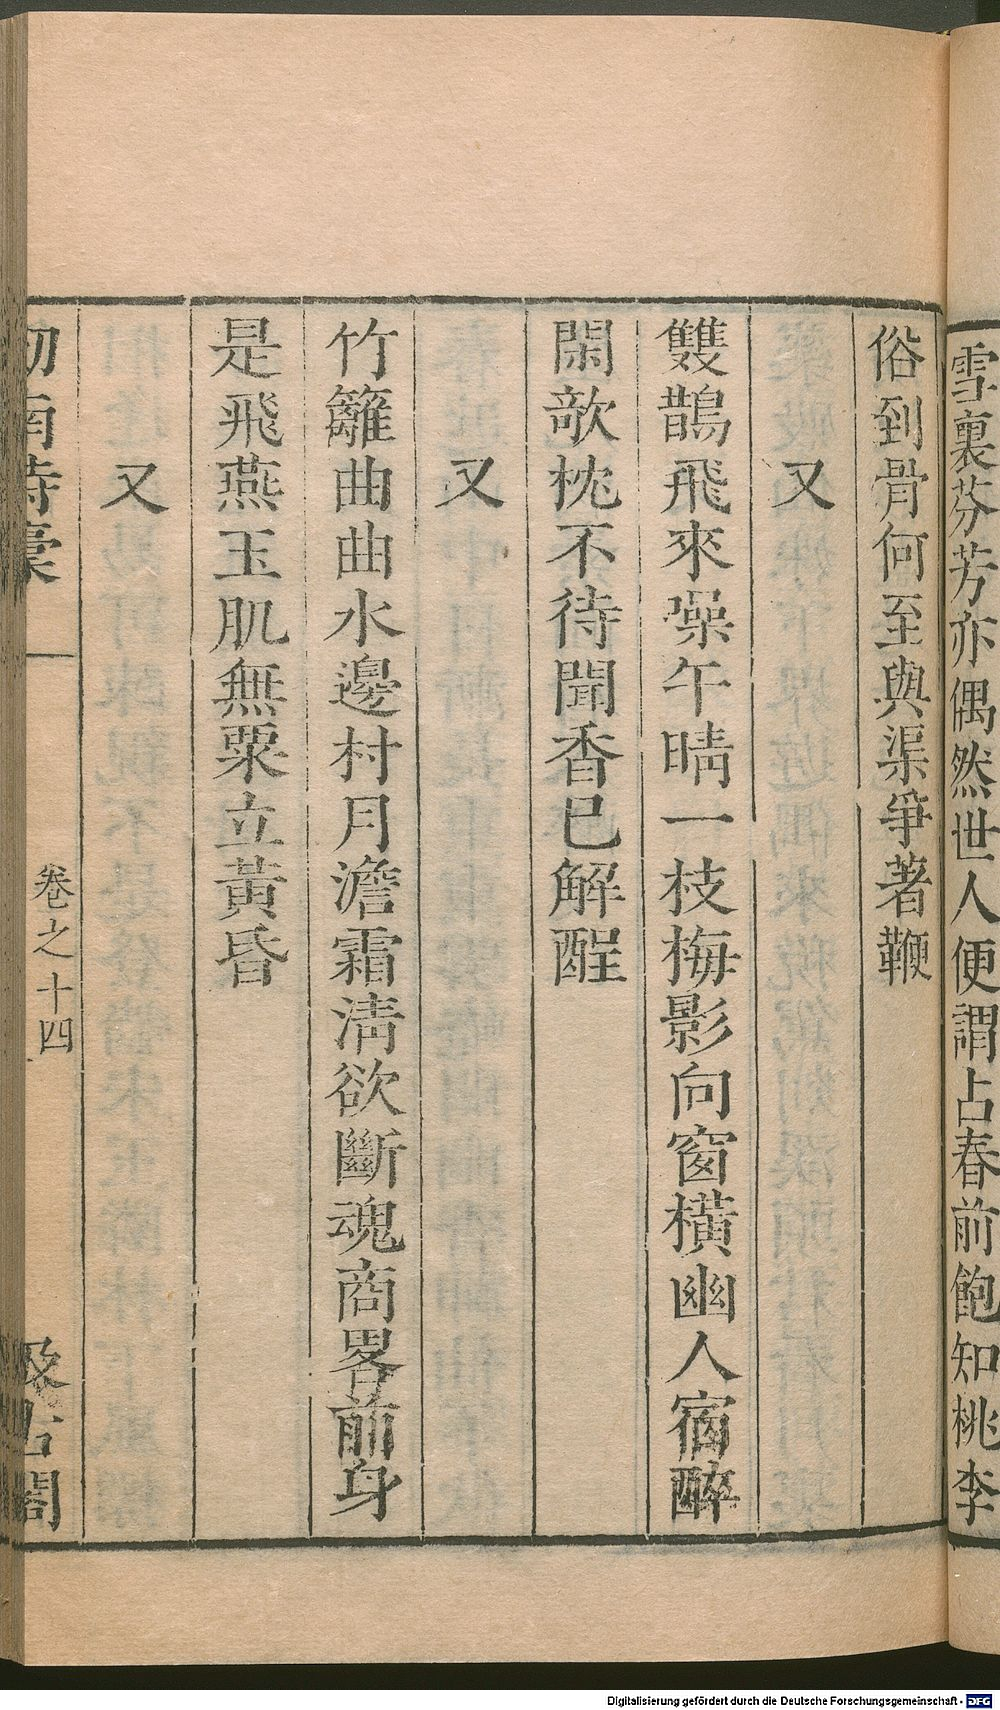 雪裏芬芳亦偶然世人便謂占春前飽知桃李
俗到骨何至與渠爭著鞭
又
雙鵲飛來噪午晴一枝梅影向窗橫幽人宿醉
閑欹枕不待聞香已解酲
又
竹籬曲曲水邊村月澹霜淸欲斷魂商畧前身
是飛燕玉肌無粟立黃昏
又
劒南詩稾 卷之十四 汲古閣
Digitalisierung gefördert durch die Deutsche Forschungsgemeinschaft - DFG